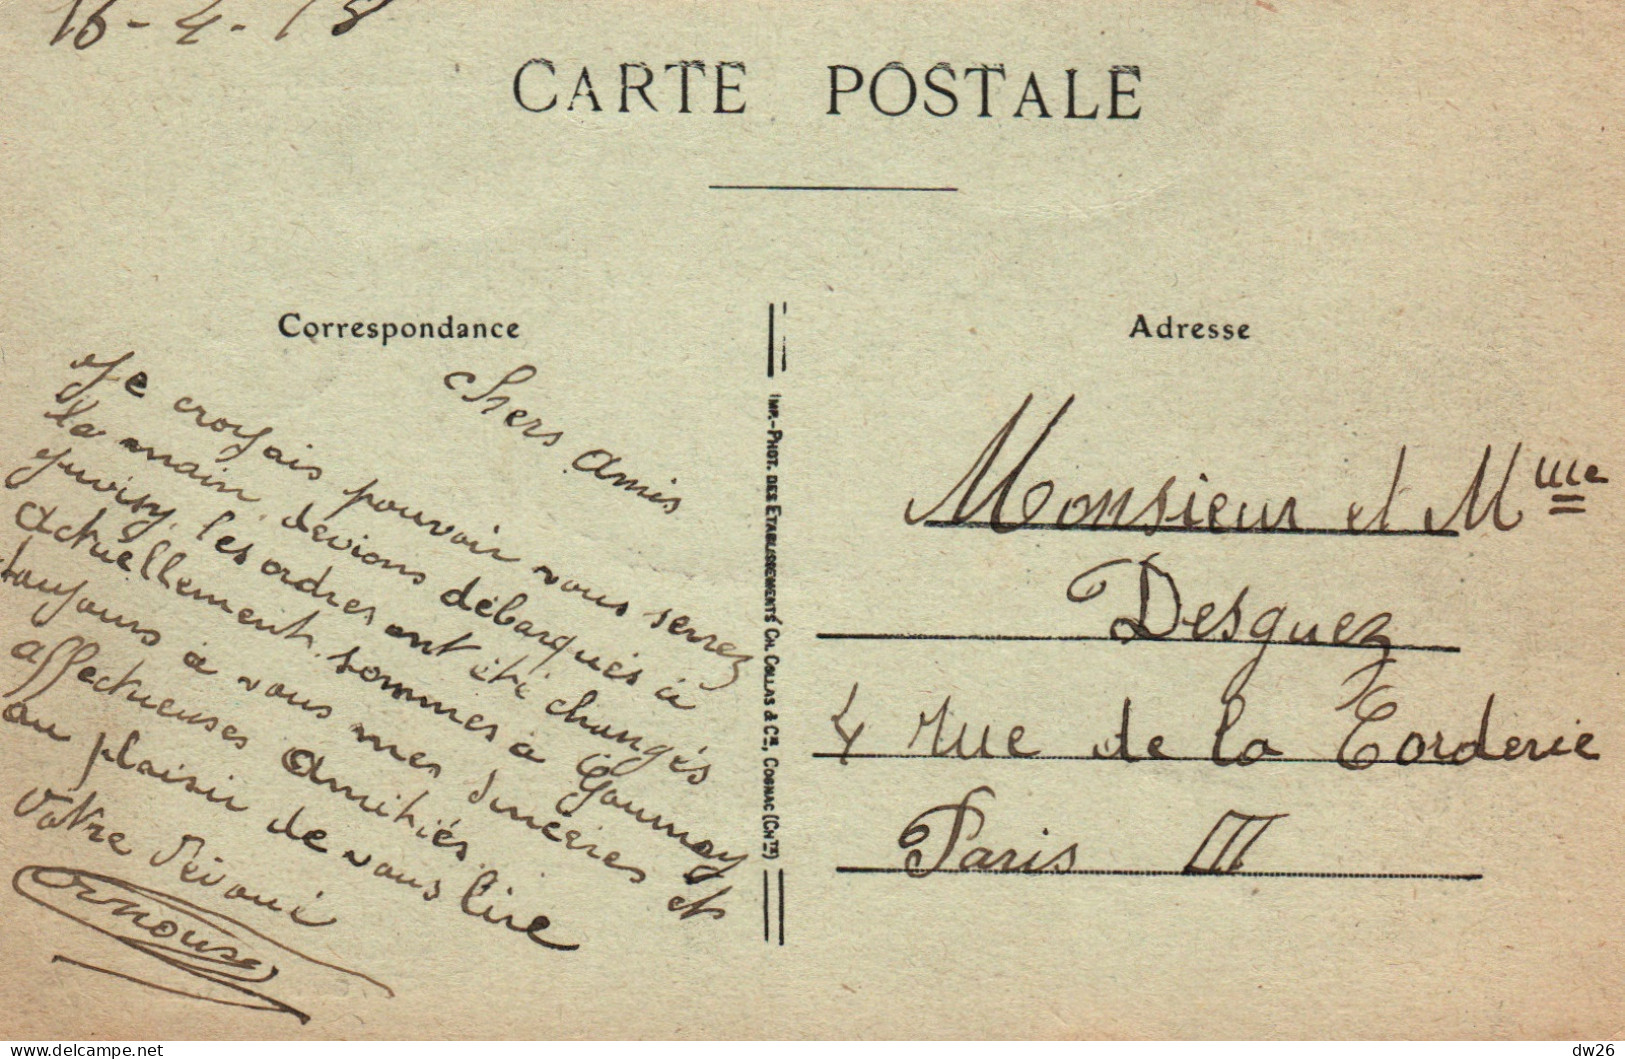 16-4-18
CARTE POSTALE
Correspondance
Chers Amis
Je croyais pouvoir vous serrez
la main, devions débarqués à
Juvisy, les ordres ont été changés
Actuellement sommes à Gournay
toujours à vous mes sincères et
affectueuses Amitiés
au plaisir de vous lire
Votre Dévoué
IMP.-PHOT. DES ETABLISSEMENTS CH. COLLAS & Cie, COGNAC (Chte)
Adresse
Monsieur et Mme
Desguez
4 rue de la Corderie
Paris III
dw26